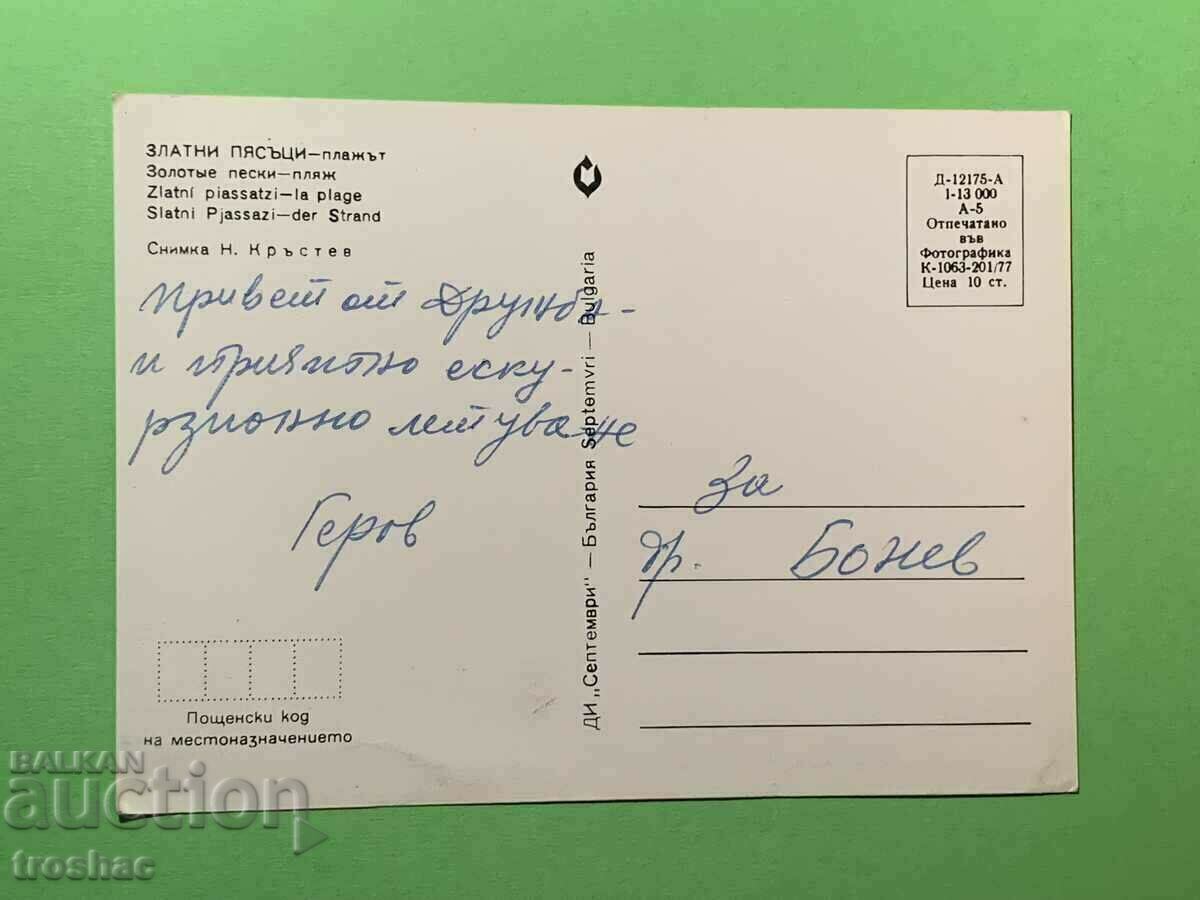 ЗЛАТНИ ПЯСЪЦИ—плажът
Золотые пески—пляж
Zlatni piassatzi—la plage
Slatni Pjassazi—der Strand
Снимка Н. Кръстев
Привет от Дружба-
и приятно еску-
рзионно летуване
Геров
Пощенски код
на местоназначението
ДИ „Септември" — България Septemvri — Bulgaria
Д-12175-А
1-13 000
А-5
Отпечатано
във
Фотографика
К-1063-201/77
Цена 10 ст.
За
др. Божев
BALKAN
auction
troshac